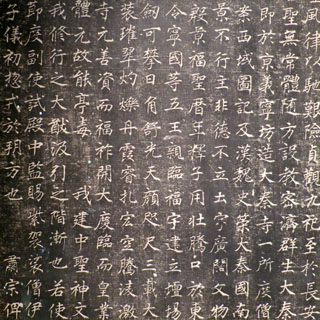 風律以馳艱險貞觀九祀至於長安
聖無常體隨方設教密濟群生大秦
即於京義寧坊造大秦寺一所度僧
案西域圖記及漢魏史策大秦國南
景不行主非德不立土宇廣闊文物
殿景福聖曆年釋子用壯騰口於東
令寧國等五王親臨福宇建立壇場
劍可攀日角舒光天顏咫尺三載大
裝璀翠灼爍丹霞睿扎宏空騰淩激
寺元善資而福祚開大慶臨而皇業
體元故能亭毒 我建中聖神文
我修行之大猷汲引之階漸也若使
節度副使試殿中監賜紫袈裟僧伊
子儀初惣戎於朔方也 肅宗俾